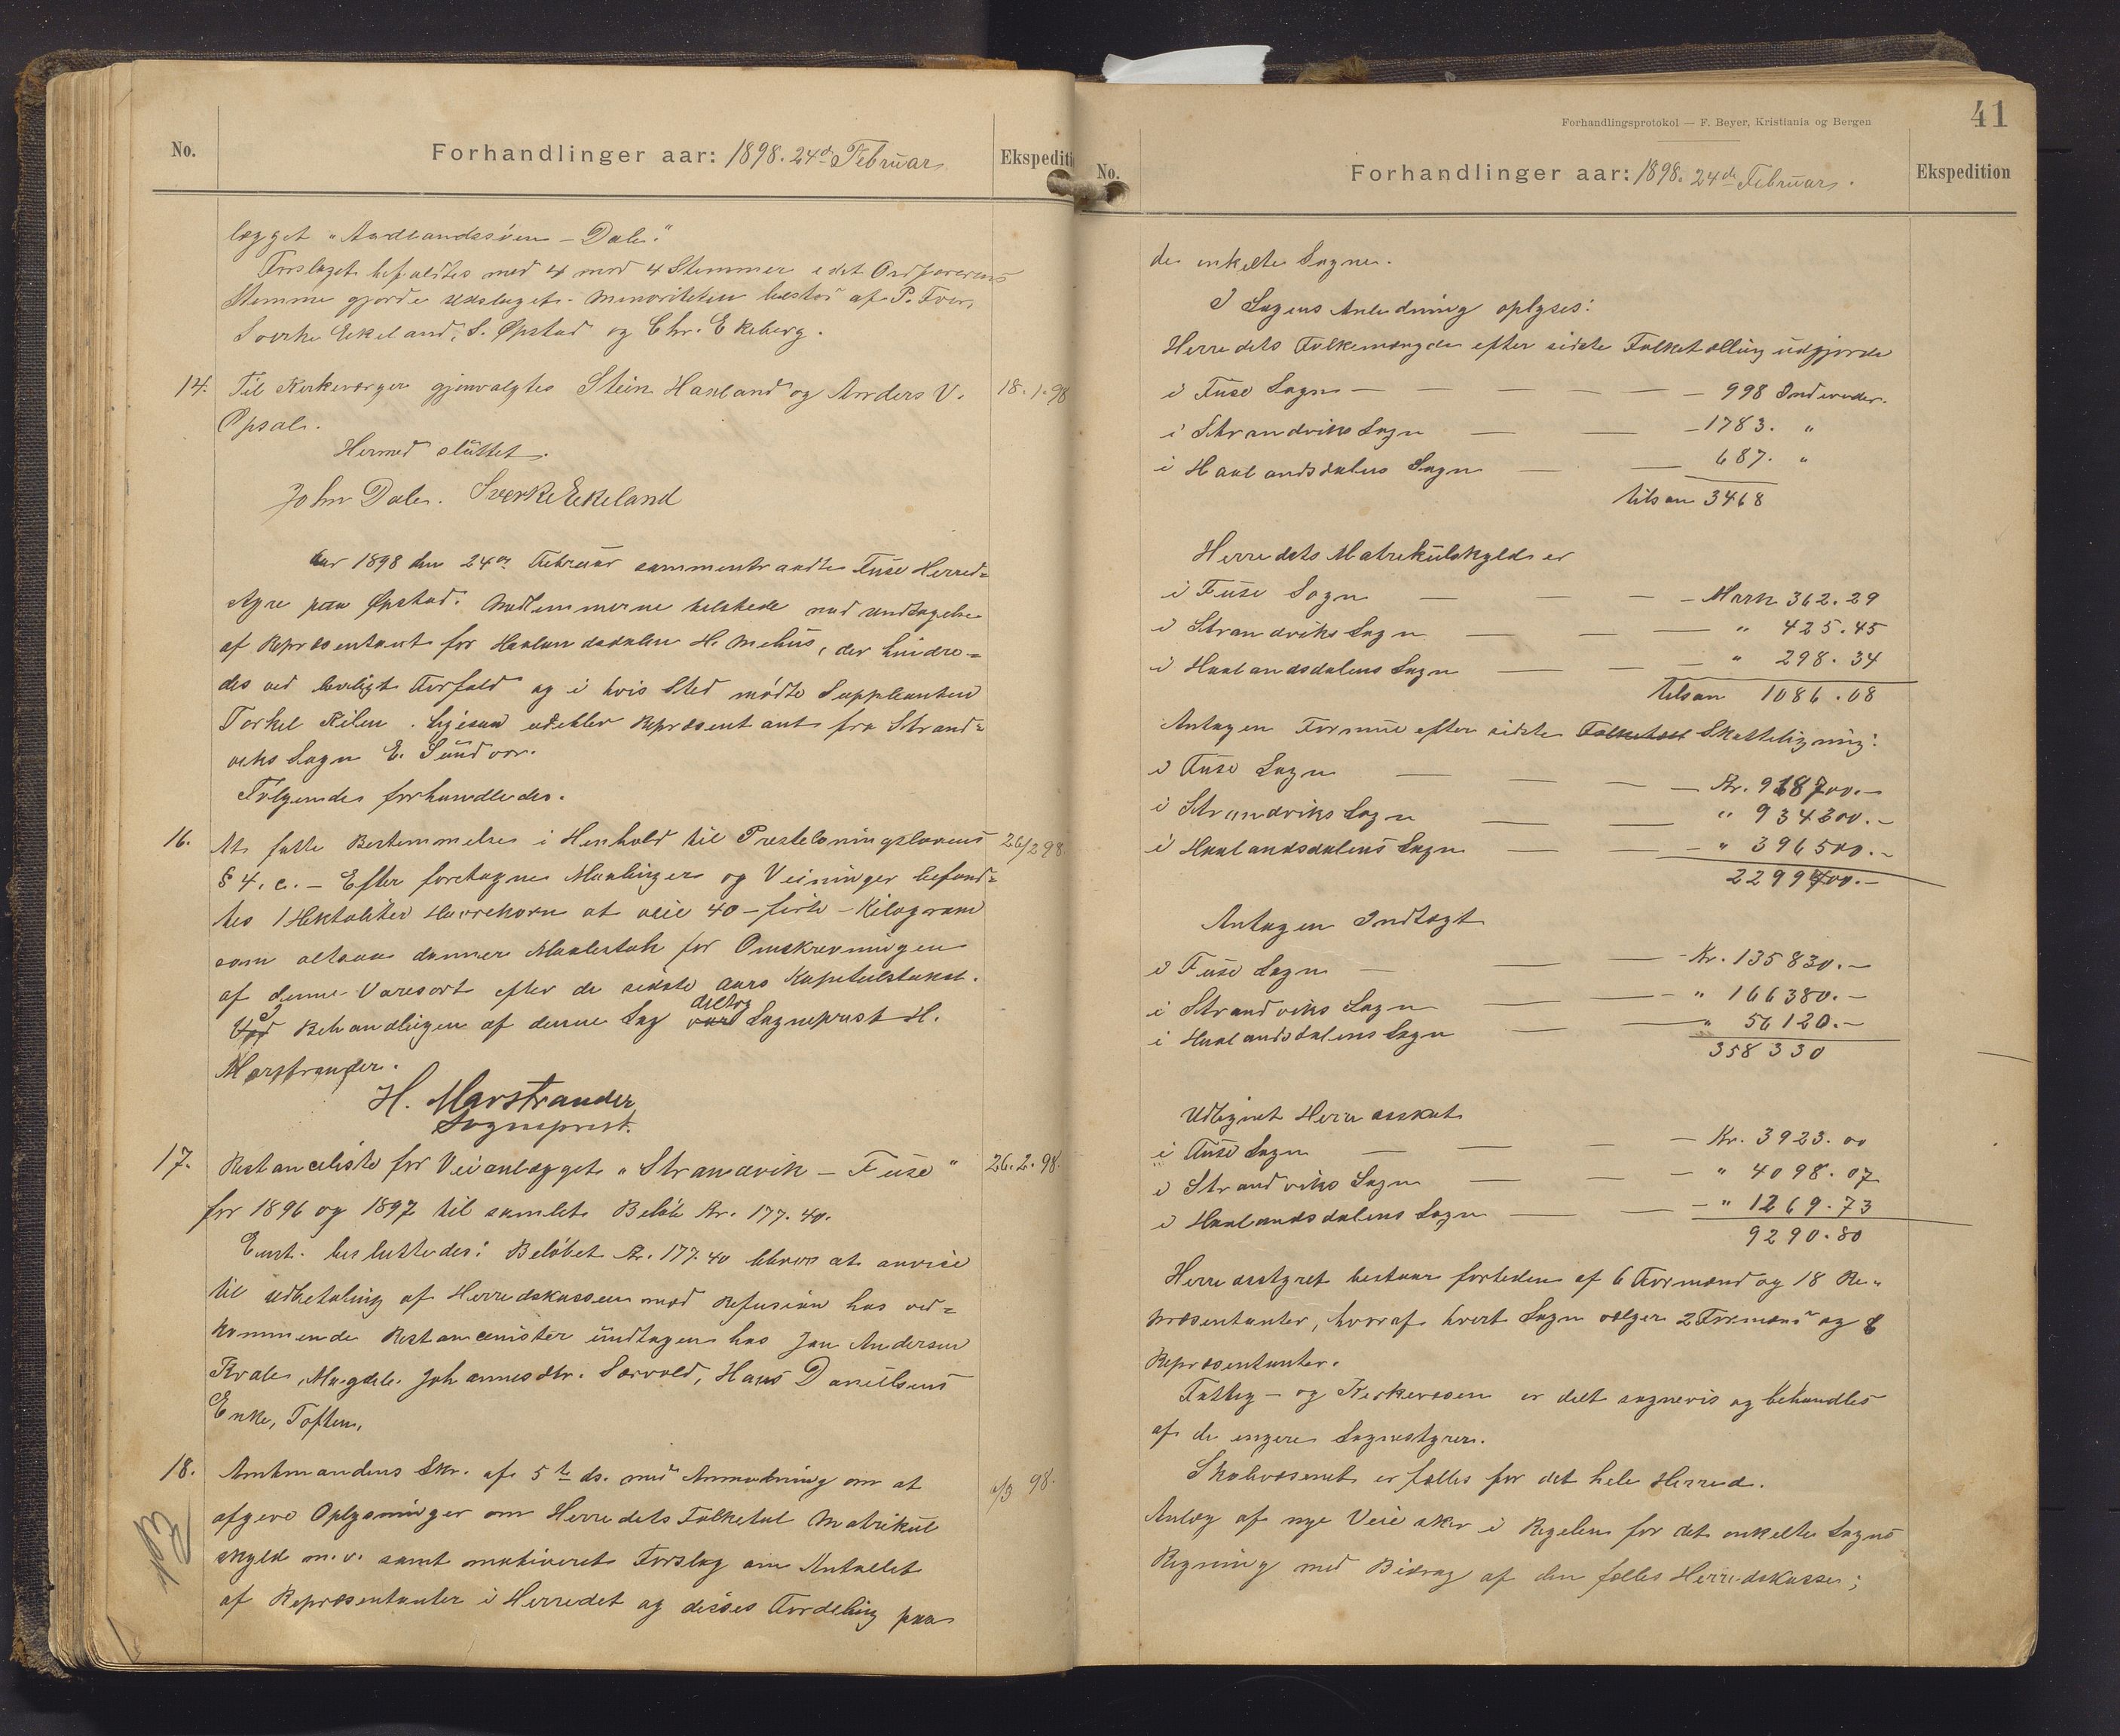 No.
Forhandlinger aar: 1898. 24de Februar
Ekspediti
lægget "Aadlandssøen - Dale."
Forslaget befaldtes med 4 mod 4 Stemmer idet Ordførerens
Stemme gjorde Udslaget. Minoriteten bestod af P. Iver,
Sverke Eikeland, S. Øpstad og Chr. Ekeberg.
14. Til Kirkeværger gjenvalgtes Stein Haaland og Anders V. 18.1.98
Opsal.
Hermed sluttet.
John Dale. Sverke Eekeland
Aar 1898 den 24de Februar sammentraadte Fuse Herred=
styre paa Øpstad. Medlemmerne tilstede med Undtagelse
af Repræsentant for Haalandsdalen H. Mehus, der hindre=
des ved lovligt Forfald og i hvis Sted mødte Suppleanten
Torkel Kilen. Ligesaa udeblev Repræsentant fra Strand=
viks Sogn E. Sundvor.
Følgende forhandledes.
16. At fatte Bestemmelse i Henhold til Presteløningslovens 26/2 98.
§ 4. c. - Efter foretagne Maalinger og Veininger befand=
tes 1 Hektoliter Havrekorn at veie 40 - firti - Kilogram
som altsaa danner Maalestok for Omskrevningen
af denne Varesort efter de sidste Aars Kapitelstakst.
I Behandlingen af denne Sag deltog Sogneprest H.
Marstrander.
H. Marstrander
Sogneprest.
17. Restanceliste for Veianlægget "Strandvik - Fuse" 26.2.98.
for 1896 og 1897 til samlet Beløb Kr. 177.40.
Enst. besluttedes: Beløbet Kr. 177.40 bliver at anvise
til Udbetaling af Herredskassen mod Refusion hos ved=
kommende Restancenister undtagen hos Jan Andersen
Kvale, Magdel. Johannesdtr. Sørvold, Hans Danielsens
Enke, Toften.
18. Amtmandens Skr. af 5te ds. med Anmodning om at /3 98.
afgive Oplysninger om Herredets Folketal Matrikul
skyld m.v. samt motiveret Forslag om Antallet
af Repræsentanter i Herredet og disses Fordeling paa
Forhandlingsprotokol — F. Beyer, Kristiania og Bergen
41
No.
Forhandlinger aar: 1898. 24de Februar.
Ekspedition
de enkelte Sogne.
I Sagens Anledning oplyses:
Herredets Folkemængde efter sidste Folketælling udgjorde
i Fuse Sogn — — — — — 998 Individer.
i Strandviks Sogn — — - 1783. "
i Haalandsdalens Sogn — — 687. "
tilsam 3468
Herredets Matrikulskyld er
i Fuse Sogn — — — Mark 362.29
i Strandviks Sogn — — — " 425.45
i Haalandsdalens Sogn — — — " 298.34
tilsam 1086.08
Antagen Formue efter sidste Folketæll Skatteligning:
i Fuse Sogn — — — Kr. 968700.—
i Strandviks Sogn — — " 934200.—
i Haalandsdalens Sogn — — " 396500.—
2299400.—
Antagen Indtægt
i Fuse Sogn — — — Kr. 135830.—
i Strandviks Sogn — — " 166380.—
i Haalandsdalens Sogn — — " 56120.—
358330
Udlignet Herredsskat
i Fuse Sogn — — — Kr. 3923.00
i Strandviks Sogn — — — " 4098.07
i Haalandsdalens Sogn — — " 1269.73
9290.80
Herredsstyret bestaar fortiden af 6 Formænd og 18 Re-
præsentanter, hvoraf hvert Sogn vælger 2 Formænd og 6
Repræsentanter.
Fattig- og Kirkevæsen er delt sognevis og behandles
af de engere Sognestyrer.
Skolevæsenet er fælles for det hele Herred.
Anlæg af nye Veie sker i Regelen for det enkelte Sogns
Regning med Bidrag af den fælles Herredskasse;